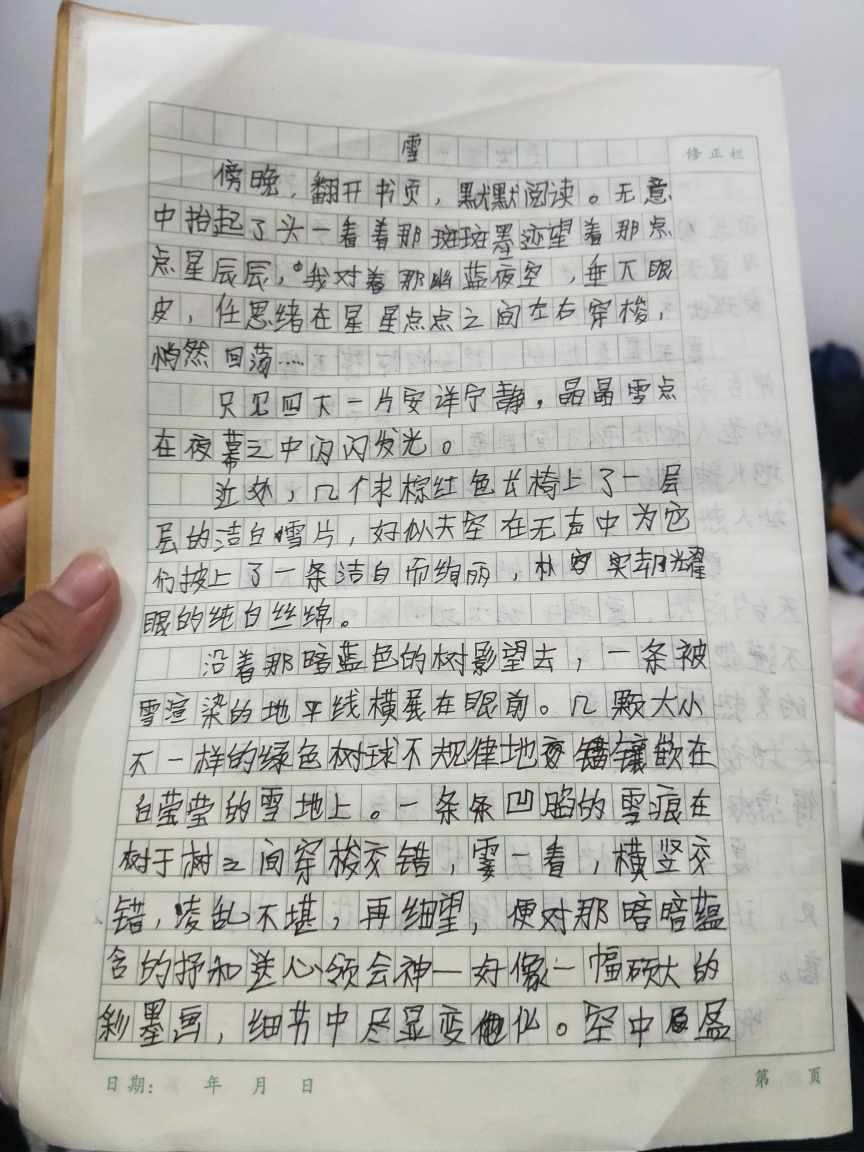 雪
修正栏
傍晚,翻开书页,默默阅读。无意
中抬起了头一看着那斑斑墨迹望着那点
点星辰辰,我对着那幽蓝夜空,垂下眼
皮,任思绪在星星点点之间左右穿梭,
悄然回荡……
只见四下一片安详宁静,晶晶雪点
在夜幕之中闪闪发光。
近处,几个棕红色长椅上了一层
层的洁白雪片,好似天空在无声中为它
们披上了一条洁白而绚丽,朴实却耀
眼的纯白丝绵。
沿着那暗蓝色的树影望去,一条被
雪渲染的地平线横展在眼前。几颗大小
不一样的绿色树球不规律地镶嵌在
白莹莹的雪地上。一条条凹陷的雪痕在
树于树之间穿梭交错,霎一看,横竖交
错,凌乱不堪,再细望,便对那暗暗蕴
含的抒和送心领会神一好像一幅硕大的
彩墨画,细节中尽显变化。空中盈
日期: 年 月 日
第 页